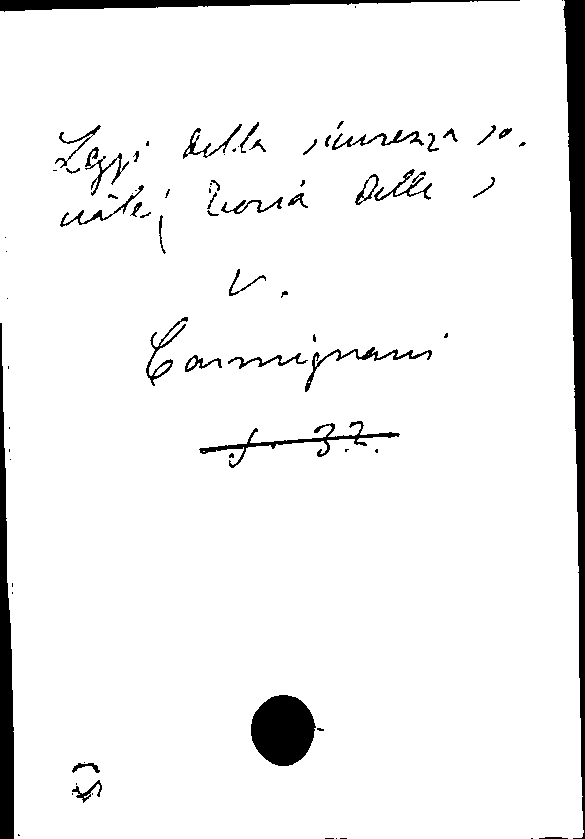 Leggi della sicurezza so-
ciale; Teoria delle ,
V.
Carmignani
f. 32.